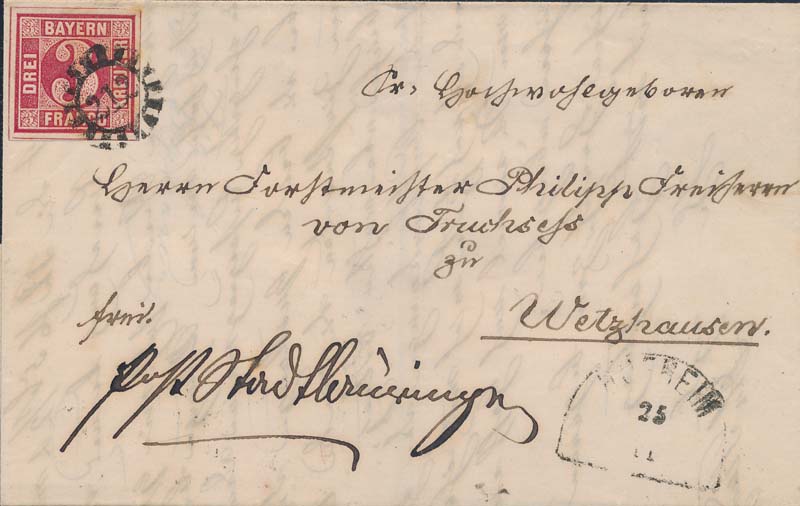 BAYERN
DREI
KREUZER
FRANCO
3
Sr. Hochwohlgeboren
Herrn Forstmeister Philipp Freiherrn
von Truchsess
zu
Wetzhausen.
frei.
Post Stadtlauringen
HOFHEIM
25
11